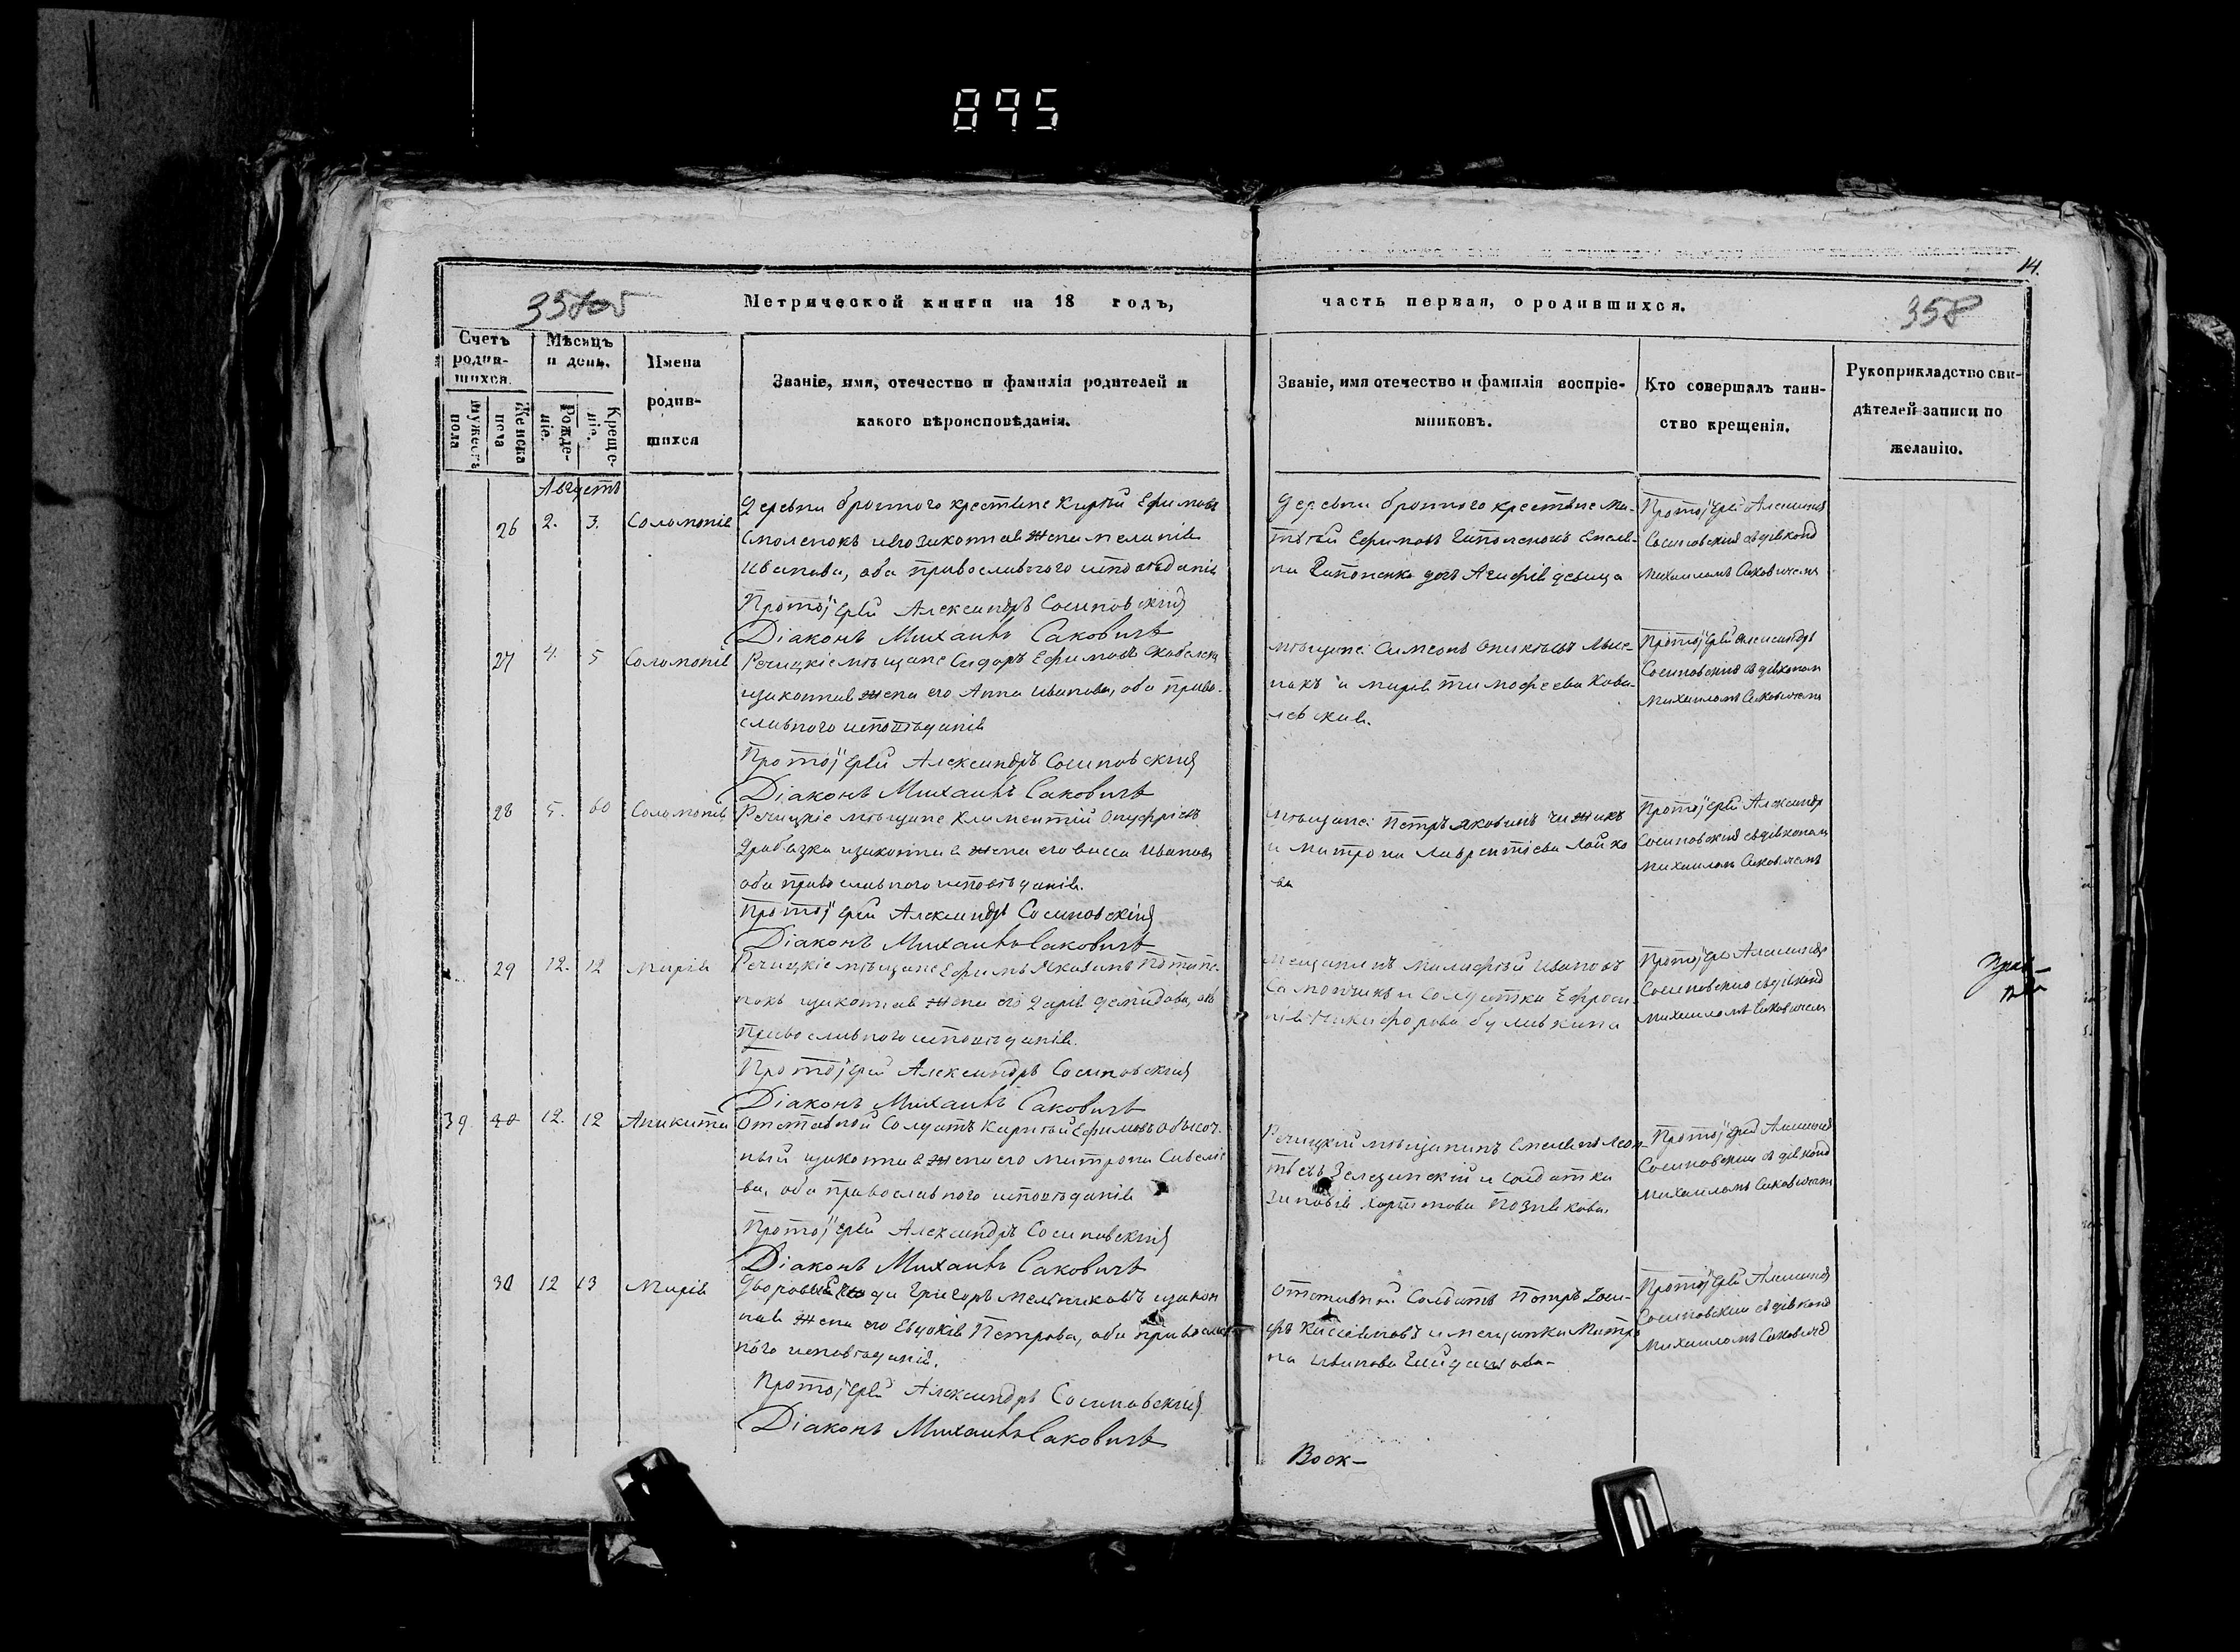 895
14.
358
Метрической книги на 18 годъ,
часть первая, о родившихся.
358
Счетъ родив-шихся.
Мѣсяцъ и день.
Имена родив-шихся
Званіе, имя, отечество и фамилія родителей и
какого вѣроисповѣданія.
Званіе, имя отечество и фамилія воспріе-
мниковъ.
Кто совершалъ таин-
ство крещенія.
Рукоприкладство сви-
дѣтелей записи по
желанію.
мужеск пола
Женска пола
Рожде-ніе.
Креще-ніе.
Августъ
26 2. 3. Соломонія
Деревни Броннаго крестьяне Кирѣй Ефимовъ
Смоленокъ и его законная жена Меланія
Иванова, оба православнаго исповѣданія
Протоіерей Александръ Сосиновскій
Діаконъ Михаилъ Саковичъ
Деревни Броннаго крестьяне Ма-
тѣй Ефимовъ Гапоненокъ
Гапоненка дочь Агафія девица
Протоіерей Александръ
Сосиновскій съ діакономъ
Михаиломъ Саковичемъ
27 4. 5 Соломонія
Речицкіе мѣщане Сидоръ Ефимовъ
и законная жена его Анна Иванова, оба право-
славнаго исповѣданія
Протоіерей Александръ Сосиновскій
Діаконъ Михаилъ Саковичъ
мѣщане: Симеонъ
и Марія Тимофеева Кова-
левская.
Протоіерей Александръ
Сосиновскій съ діакономъ
Михаиломъ Саковичемъ
28 5. 60 Соломонія
Речицкіе мѣщане Климентій Онуфріевъ
Драбазка и законная жена его Васса Иванова
оба православнаго исповѣданія.
Протоіерей Александръ Сосиновскій
Діаконъ Михаилъ Саковичъ
мѣщане: Петръ Яковлевъ Чижикъ
и Матрона Лаврентіева Лойко
ва
Протоіерей Александръ
Сосиновскій съ діакономъ
Михаиломъ Саковичемъ
29 12. 12 Марія
Речицкіе мѣщане Ефимъ Яковлевъ Потапе-
нокъ и законная жена его Дарія Демидова, оба
Православнаго исповѣданія.
Протоіерей Александръ Сосиновскій
Діаконъ Михаилъ Саковичъ
мещанинъ Ивановъ
и Солдатка Ефроси-
нія Никифорова Булавкина
Протоіерей Александръ
Сосиновскій съ діакономъ
Михаиломъ Саковичемъ
39. 30 12. 12 Аникита
Отставной Солдатъ Ефимовъ
и законная жена его Матрона Савеліе
ва, оба православнаго исповѣданія
Протоіерей Александръ Сосиновскій
Діаконъ Михаилъ Саковичъ
Речицкій мѣщанинъ Емеліянъ Леон-
тьевъ Зелезинскій и солдатка
Зиновія Харитонова Познякова.
Протоіерей Александръ
Сосиновскій съ діакономъ
Михаиломъ Саковичемъ
30 12 13 Марія
Дворовые люди Григорѣ Мельниковъ и закон
ная жена его Евдокія Петрова, оба православ-
наго исповѣданія.
Протоіерей Александръ Сосиновскій
Діаконъ Михаилъ Саковичъ
Отставной Солдатъ Петръ Іоси-
фъ и мещанка Матро
на Иванова
Протоіерей Александръ
Сосиновскій съ діакономъ
Михаиломъ Саковичемъ
Воск-